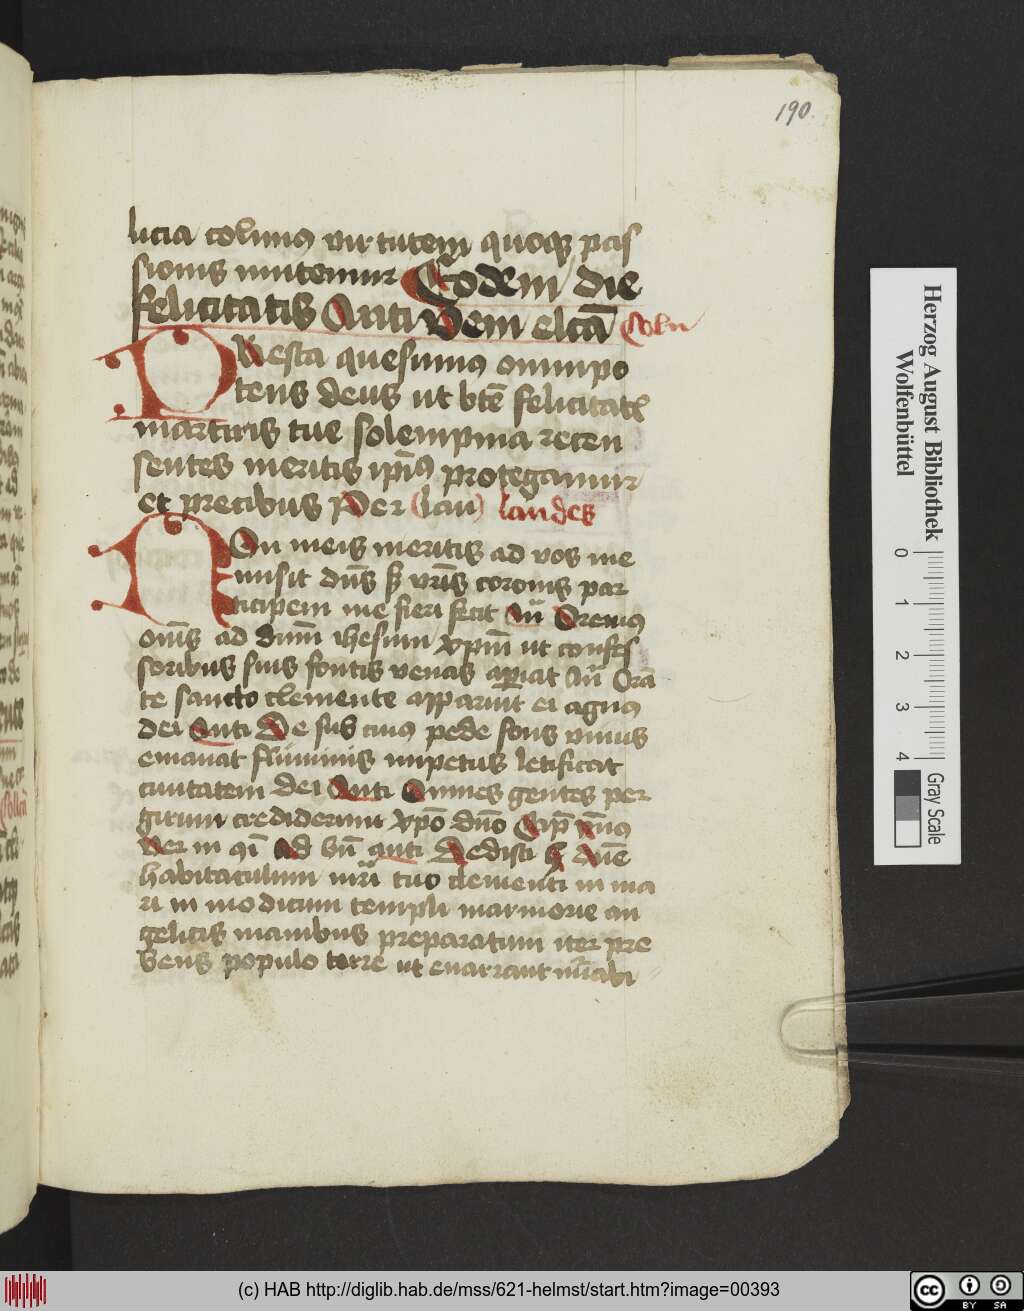 190
licia colimus virtutem quoque pas
sionis imitemur Eodem die
felicitatis Anti Veni elcā Coln
Presta quesumus omnipo
tens deus ut bte felicitatis
martiris tue solempnia recen
sentes meritis ipsius protegamur
et precibus Per (lau) laudes
Non meis meritis ad vos me
misit dns sz vris coronis par
ticipem me fieri fecit An Oremus
oms ad dnm ihesum xpm ut confes
soribus suis fontis venas aperiat An Oran
te sancto clemente apparuit ei agnus
dei Anti De sub cuius pede fons vivus
emanat fluminis impetus letificat
civitatem dei Anti Omnes gentes per
girum crediderunt xpo dno
Ad bn anti Dedisti dne
habitaculum mri tuo clementi in ma
ri in modicum templi marmorie an
gelicis manibus preparatum iter pre
bens populo terre ut enarrant mirabi
Herzog August Bibliothek
Wolfenbüttel
0 1 2 3 4
Gray Scale
(c) HAB http://diglib.hab.de/mss/621-helmst/start.htm?image=00393
cc BY SA